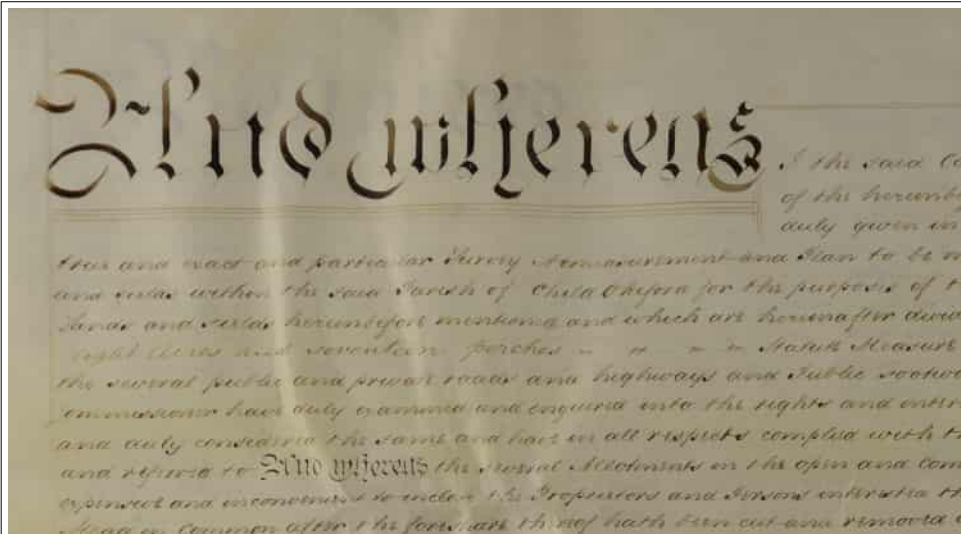 And whereas
I the said Co
of the hereinbe
duly given in
true and exact and particular Survey Admeasurement and Plan to be m
and fields within the said Parish of Child Okeford for the purposes of t
Lands and fields hereinbefore mentioned and which are hereinafter divid
eight Acres and seventeen perches Statute Measure
the several public and private roads and highways and Public
Commissioner have duly examined and enquired into the rights and inter
and duly considered the same and have in all respects complied with th
and referred to And whereas the several Allotments in the open and Com
expensive and inconvenient to inclose the Proprietors and Persons interested th
Mead in Common after the foreshare thereof hath been cut and removed